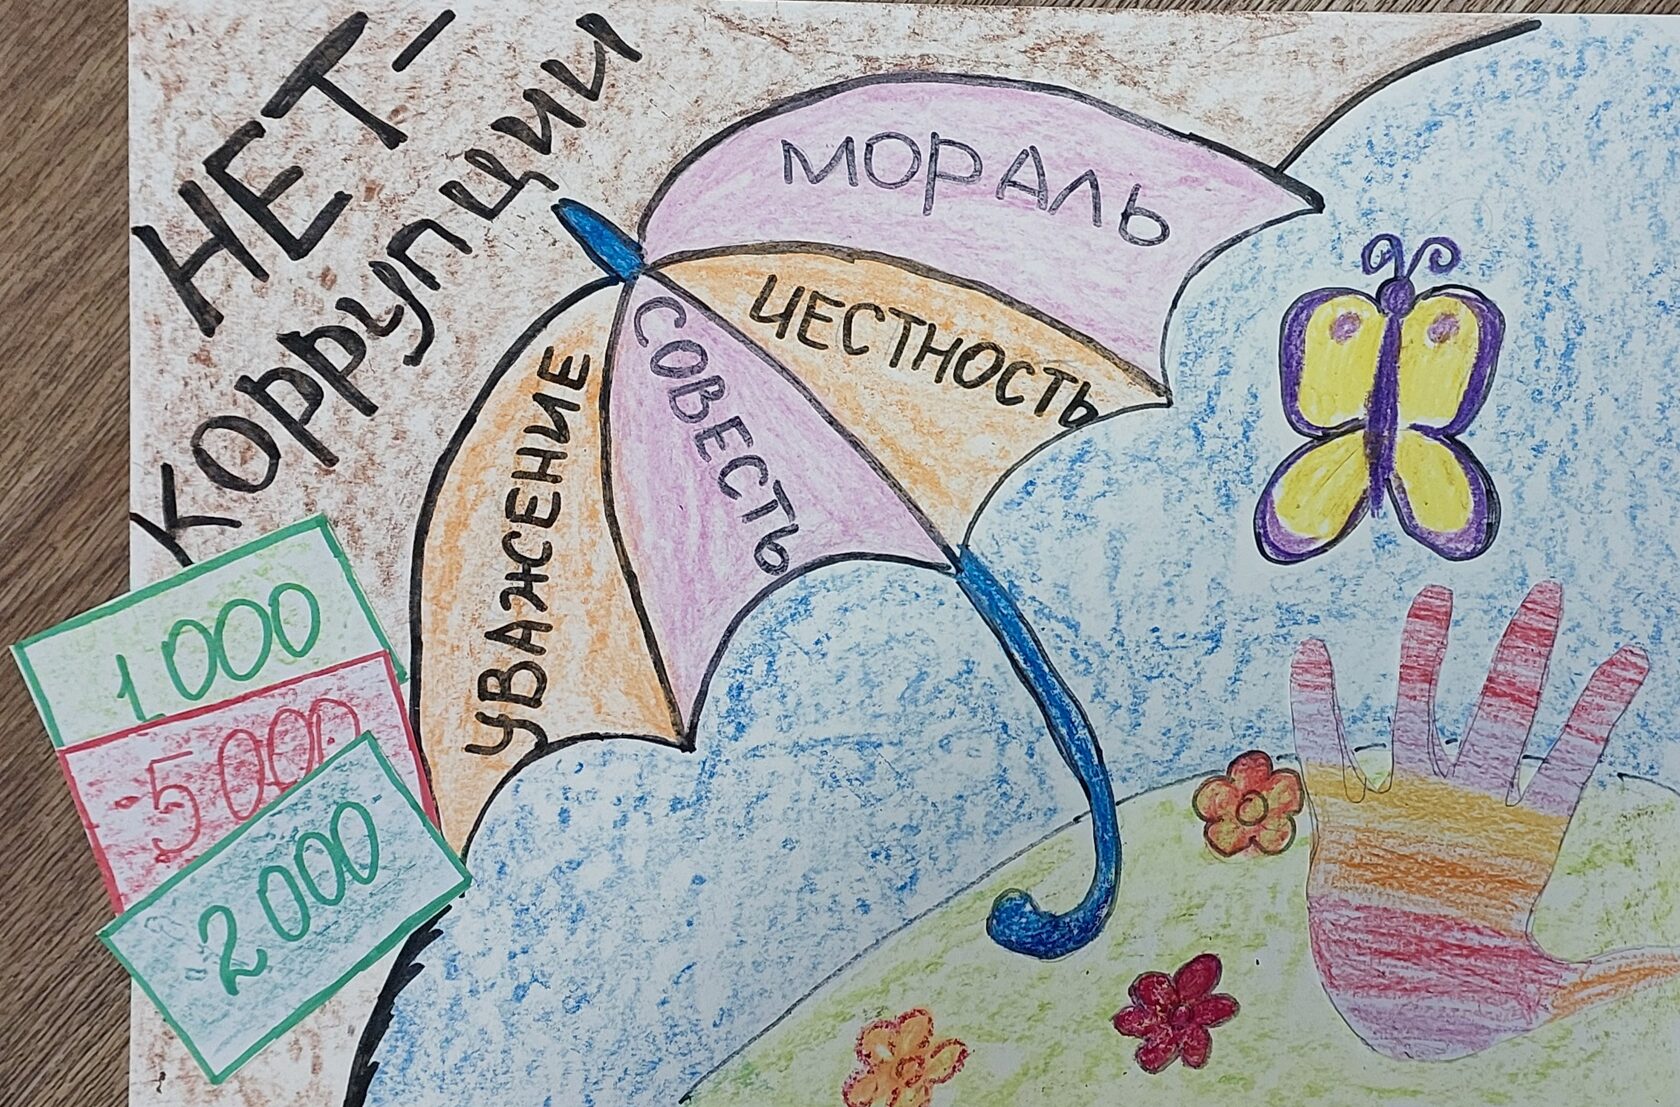 НЕТ-
КОРРУПЦИИ
МОРАЛЬ
ЧЕСТНОСТЬ
СОВЕСТЬ
УВАЖЕНИЕ
1000
5000
2000